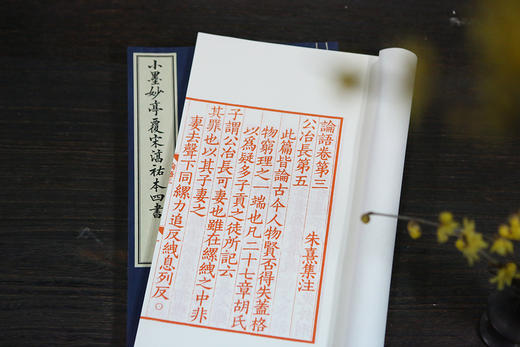 論語卷第三
朱熹集注
公冶長第五
此篇皆論古今人物賢否得失蓋格
物窮理之一端也凡二十七章胡氏
以為疑多子貢之徒所記云
子謂公冶長可妻也雖在縲絏之中非
其罪也以其子妻之
妻去聲下同縲力追反絏息列反○
小墨妙亭覆宋淳祐本四書